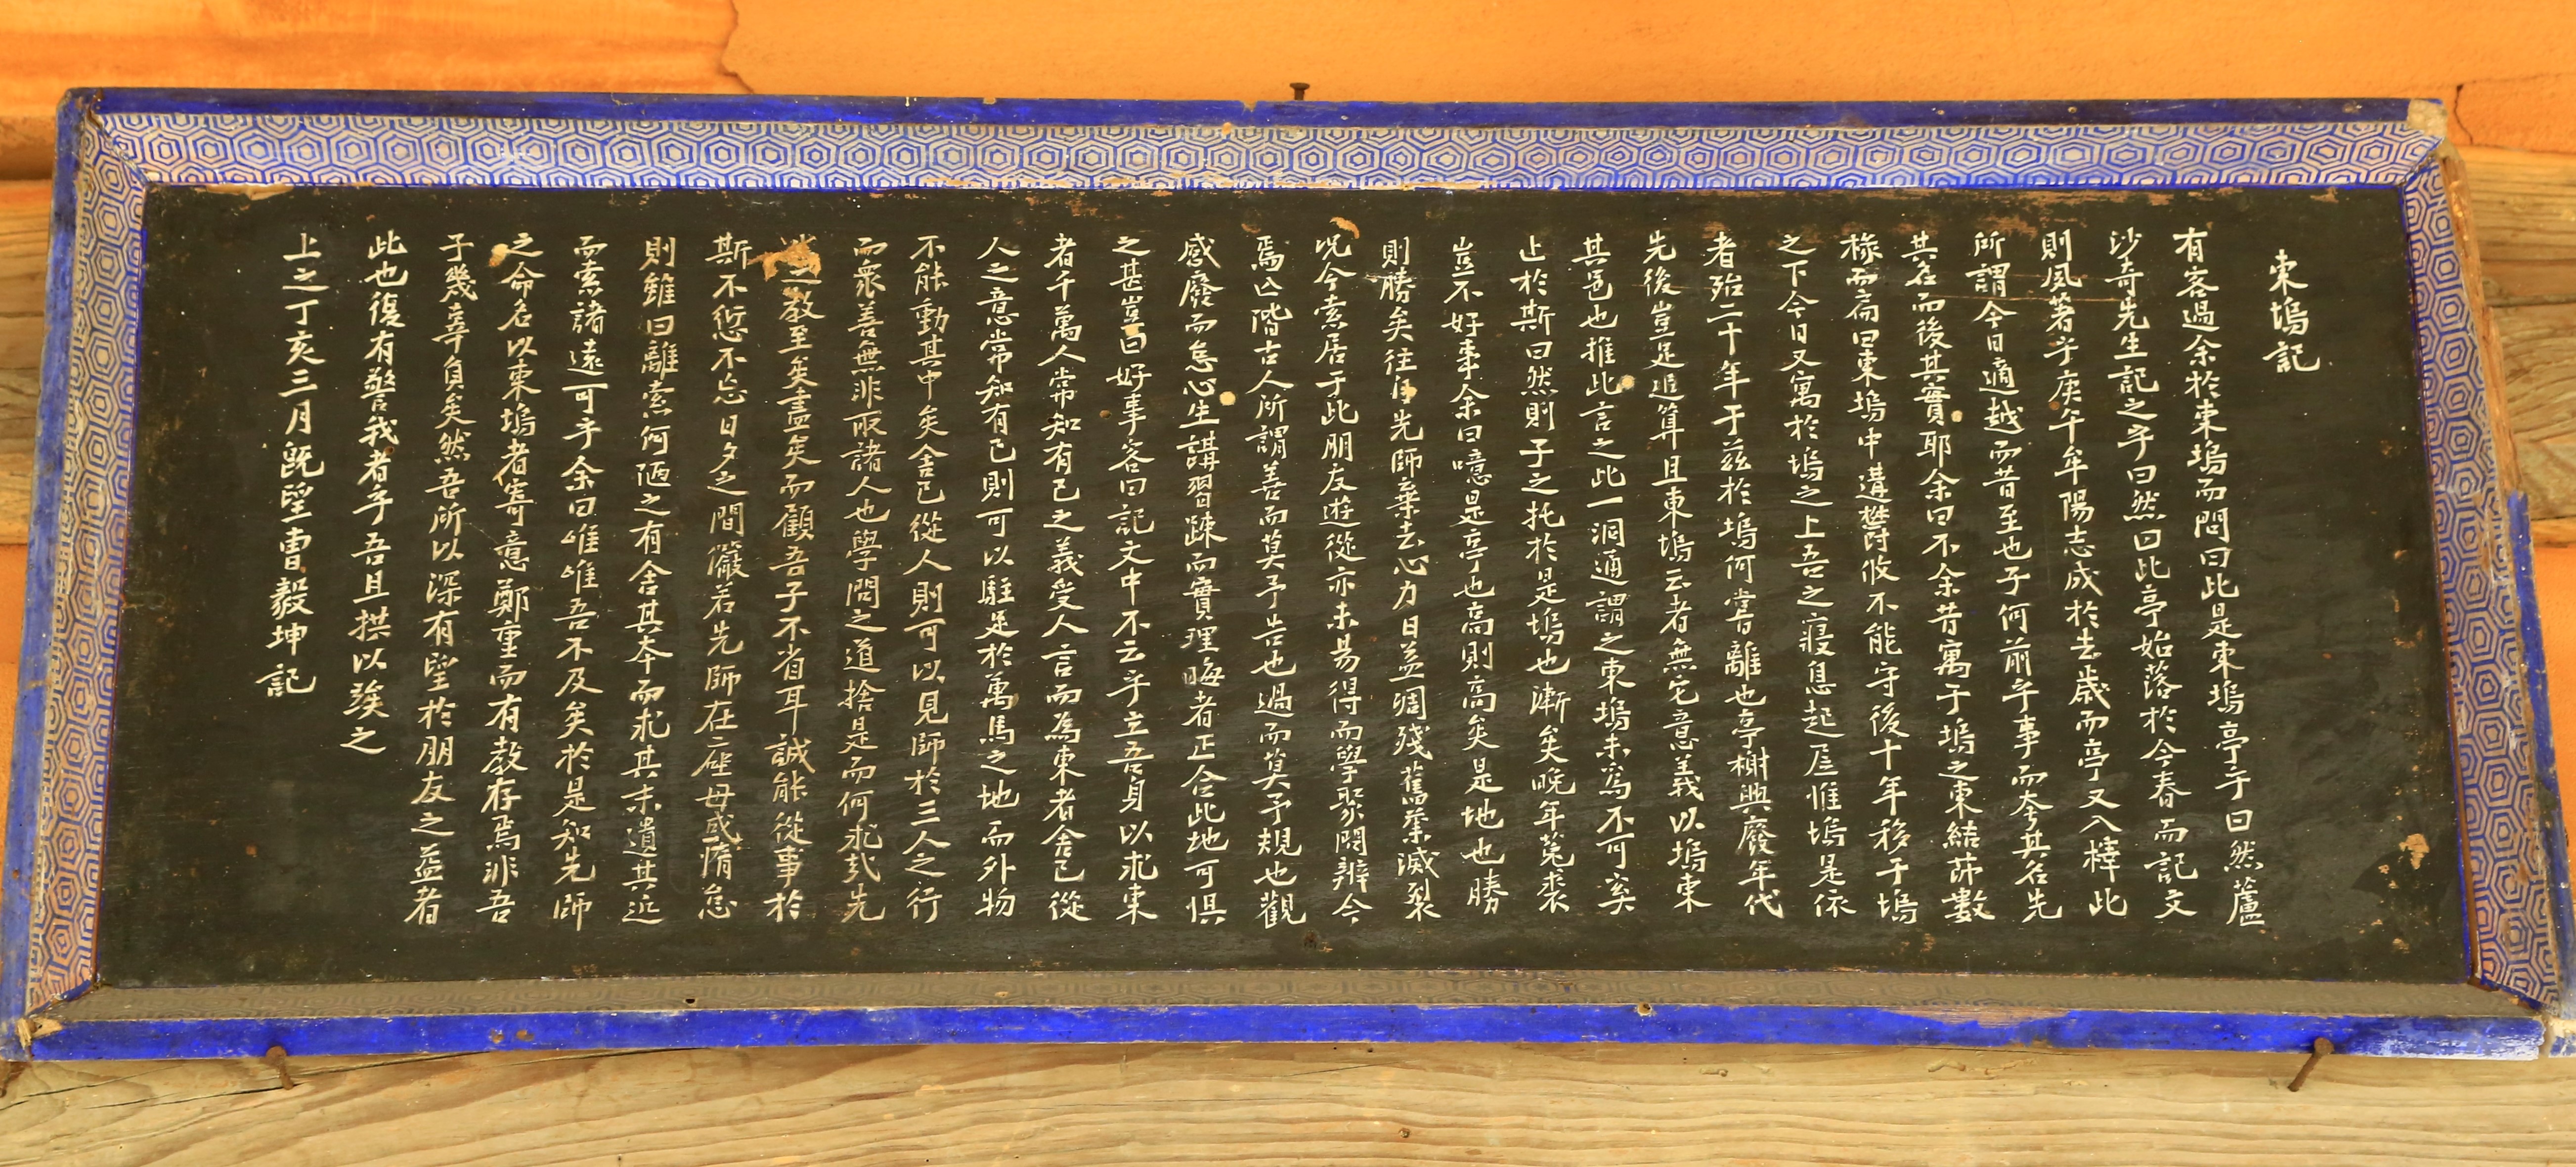 東塢記
有客過余於東塢而問曰此是東塢亭乎曰然蘆
沙奇先生記之乎曰然曰此亭始落於今春而記文
則夙著乎庚午年陽志成於去歲而亭又入梓此
所謂今日適越而昔至也子何前乎事而夸其名先
其名而後其實耶余曰不余昔寓于塢之東結茆數
椽而扁曰東塢中遘欝攸不能守後十年移于塢
之下今日又寓於塢之上吾之寢息起居惟塢是依
者殆二十年于茲於塢何嘗離也亭榭興廢年代
先後豈足追算且東塢云者無它意義以塢東
其邑也推此言之此一洞通謂之東塢未為不可奚
止於斯曰然則子之托於是塢也漸矣晚年菟裘
豈不好事余曰噫是亭也高則高矣是地也勝
則勝矣往自先師棄去心力日益凋殘舊業滅裂
况今索居于此朋友遊從亦未易得而學聚問辨今
焉已階古人所謂善而莫予告也過而莫予規也觀
感廢而怠心生講習踈而實理晦者正合此地可惧
之甚豈曰好事客曰記文中不云乎立吾身以求東
者千萬人常知有己之義受人言而為東者舍己從
人之意常知有己則可以駐足於萬馬之地而外物
不能動其中矣舍己從人則可以見師於三人之行
而衆善無非取諸人也學問之道捨是而何求哉先
之教至矣盡矣而顧吾子不省耳誠能從事於
斯不愆不忘日夕之間儼若先師在座毋或惰怠
則雖曰離索何陋之有舍其本而求其末遺其近
而索諸遠可乎余曰唯唯吾不及矣於是知先師
之命名以東塢者寄意鄭重而有教存焉非吾
子幾辜負矣然吾所以深有望於朋友之益者
此也復有警我者乎吾且拱以竢之
上之丁亥三月旣望曺毅坤記